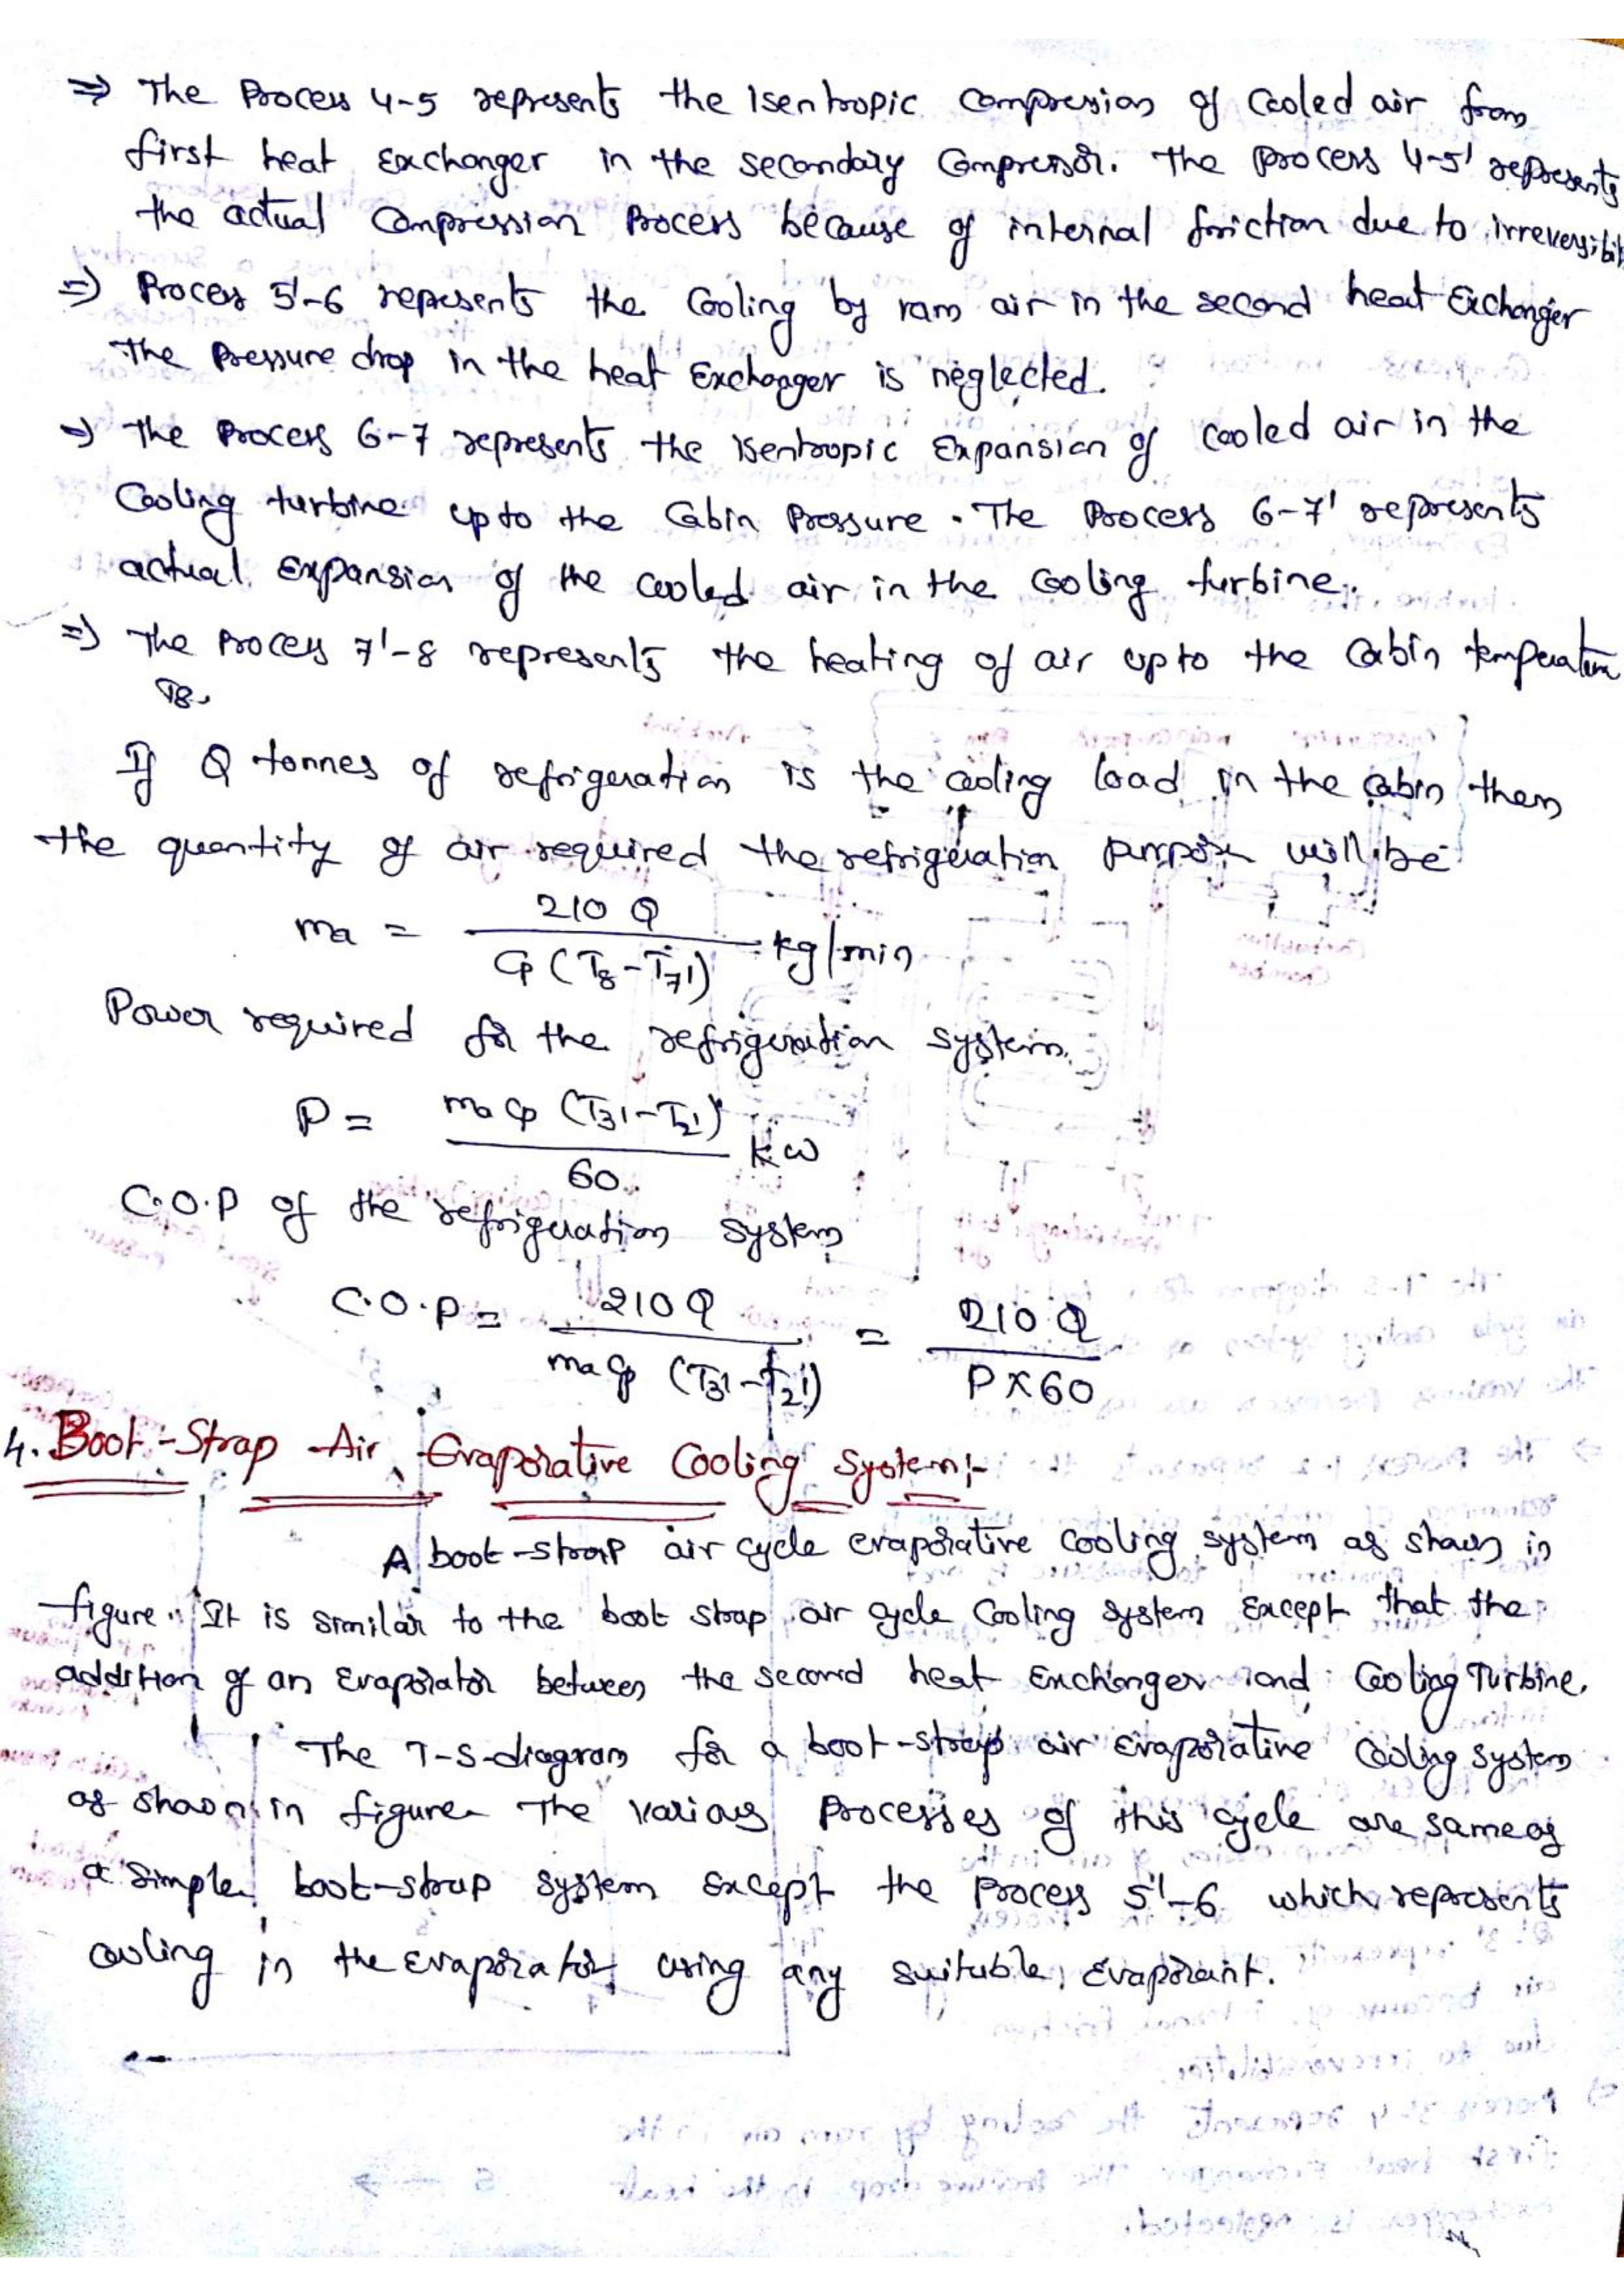 ⇒ The Process 4-5 represents the Isentropic compression of Cooled air from
first heat Exchanger in the secondary Compressor. The process 4-5' represents
the actual Compression Process because of internal friction due to irreversibil
⇒ Process 5'-6 represents the Cooling by ram air in the second heat Exchanger
The Pressure drop in the heat Exchanger is neglected.
⇒ The Process 6-7 represents the isentropic Expansion of Cooled air in the
Cooling turbine upto the Cabin Pressure. The Process 6-7' represents
actual Expansion of the cooled air in the Cooling turbine.
⇒ The Process 7'-8 represents the heating of air upto the Cabin temperature
T8.
If Q tonnes of refrigeration is the cooling load in the cabin then
the quantity of air required the refrigeration purpose will be
ma = 210 Q / Cp (T8 - T7') kg/min
Power required for the refrigeration system.
P = ma Cp (T3' - T2') / 60 kW
C.O.P of the refrigeration system
C.O.P = 210 Q / ma Cp (T3' - T2') = 210 Q / P X 60
4. Boot-Strap Air Evaporative Cooling System:-
A boot-strap air cycle evaporative cooling system as shown in
figure. It is similar to the boot strap air cycle Cooling system Except that the
addition of an Evaporator between the second heat Exchanger and Cooling Turbine.
The T-S-diagram for a boot-strap air evaporative Cooling system
as shown in figure The various Processes of this cycle are same as
a simple boot-strap system except the process 5'-6 which represents
cooling in the Evaporator using any suitable Evaporant.